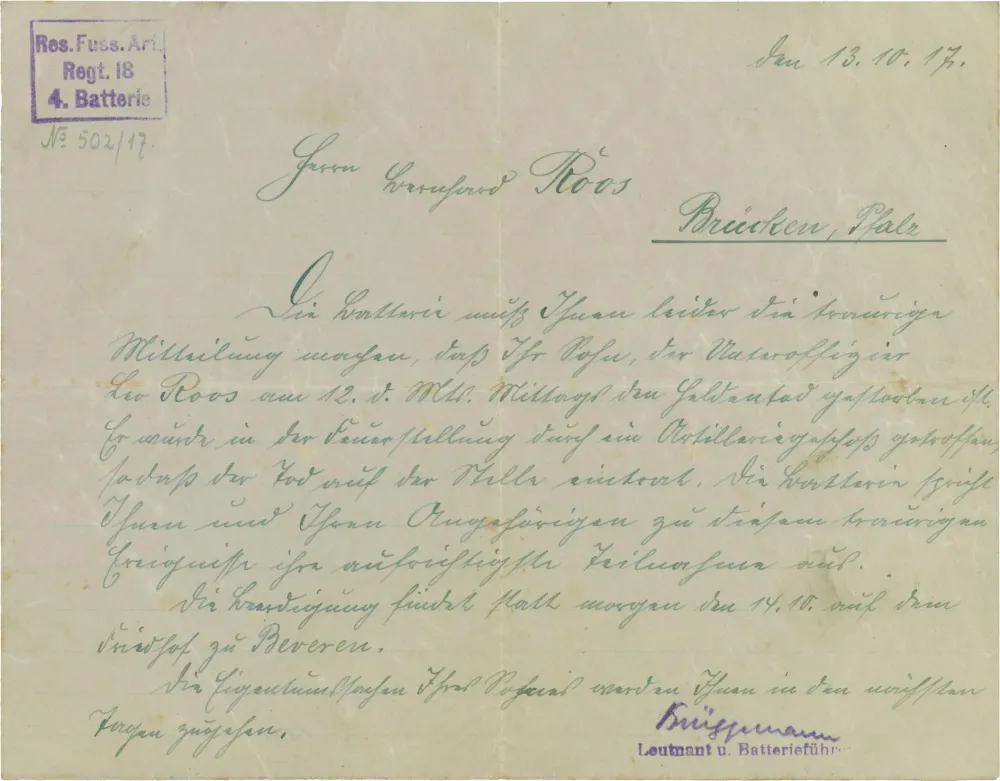 Res. Fuss. Art.
Regt. 18
4. Batterie
No 502/17.
den 13.10.17.
Herrn Bernhard Roos
Brücken, Pfalz
Die Batterie muß Ihnen leider die traurige
Mitteilung machen, daß Ihr Sohn, der Unteroffizier
Leo Roos am 12. d. Mts. Mittags den Heldentod gestorben ist.
Er wurde in der Feuerstellung durch ein Artilleriegeschoß getroffen,
sodaß der Tod auf der Stelle eintrat. Die Batterie spricht
Ihnen und Ihren Angehörigen zu diesem traurigen
Ereignisse ihre aufrichtigste Teilnahme aus.
Die Beerdigung findet statt morgen den 14.10. auf dem
Friedhof zu Beveren.
Die Eigentumssachen Ihres Sohnes werden Ihnen in den nächsten
Tagen zugehen.
Brüggemann
Leutnant u. Batterieführ